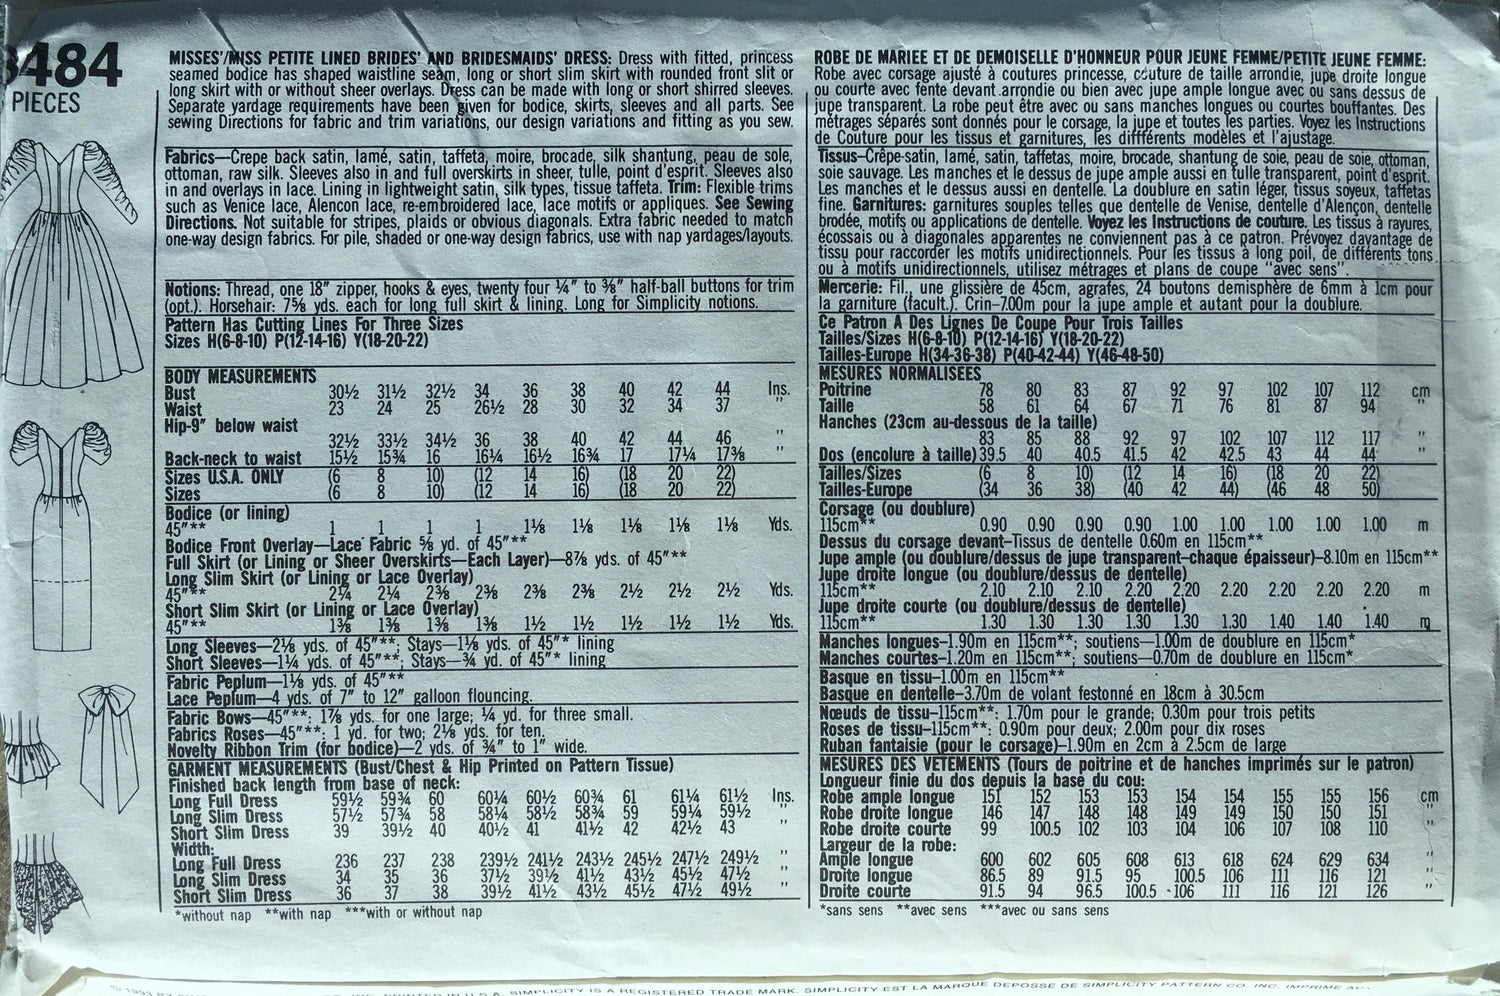 8484
PIECES
MISSES'/MISS PETITE LINED BRIDES' AND BRIDESMAIDS' DRESS: Dress with fitted, princess
seamed bodice has shaped waistline seam, long or short slim skirt with rounded front slit or
long skirt with or without sheer overlays. Dress can be made with long or short shirred sleeves.
Separate yardage requirements have been given for bodice, skirts, sleeves and all parts. See
sewing Directions for fabric and trim variations, our design variations and fitting as you sew.
Fabrics—Crepe back satin, lamé, satin, taffeta, moire, brocade, silk shantung, peau de sole,
ottoman, raw silk. Sleeves also in and full overskirts in sheer, tulle, point d'esprit. Sleeves also
in and overlays in lace. Lining in lightweight satin, silk types, tissue taffeta. Trim: Flexible trims
such as Venice lace, Alencon lace, re-embroidered lace, lace motifs or appliques. See Sewing
Directions. Not suitable for stripes, plaids or obvious diagonals. Extra fabric needed to match
one-way design fabrics. For pile, shaded or one-way design fabrics, use with nap yardages/layouts.
Notions: Thread, one 18" zipper, hooks & eyes, twenty four ¼" to ⅜" half-ball buttons for trim
(opt.). Horsehair: 7⅝ yds. each for long full skirt & lining. Long for Simplicity notions.
Pattern Has Cutting Lines For Three Sizes
Sizes H(6-8-10) P(12-14-16) Y(18-20-22)
BODY MEASUREMENTS
Bust 30½ 31½ 32½ 34 36 38 40 42 44 Ins.
Waist 23 24 25 26½ 28 30 32 34 37 "
Hip-9" below waist
32½ 33½ 34½ 36 38 40 42 44 46 "
Back-neck to waist 15½ 15¾ 16 16¼ 16½ 16¾ 17 17¼ 17⅜ "
Sizes U.S.A. ONLY (6 8 10) (12 14 16) (18 20 22)
Sizes (6 8 10) (12 14 16) (18 20 22)
Bodice (or lining)
45"** 1 1 1 1 1⅛ 1⅛ 1⅛ 1⅛ 1⅛ Yds.
Bodice Front Overlay—Lace Fabric ⅝ yd. of 45"**
Full Skirt (or Lining or Sheer Overskirts—Each Layer)—8⅞ yds. of 45"**
Long Slim Skirt (or Lining or Lace Overlay)
45"** 2¼ 2¼ 2⅜ 2⅜ 2⅜ 2⅜ 2½ 2½ 2½ Yds.
Short Slim Skirt (or Lining or Lace Overlay)
45"** 1⅜ 1⅜ 1⅜ 1⅜ 1½ 1½ 1½ 1½ 1½ Yds.
Long Sleeves—2⅛ yds. of 45"**; Stays—1⅛ yds. of 45"* lining
Short Sleeves—1¼ yds. of 45"**; Stays—¾ yd. of 45"* lining
Fabric Peplum—1⅛ yds. of 45"**
Lace Peplum—4 yds. of 7" to 12" galloon flouncing.
Fabric Bows—45"**: 1⅞ yds. for one large; ¼ yd. for three small.
Fabric Roses—45"**: 1 yd. for two; 2⅛ yds. for ten.
Novelty Ribbon Trim (for bodice)—2 yds. of ¾" to 1" wide.
GARMENT MEASUREMENTS (Bust/Chest & Hip Printed on Pattern Tissue)
Finished back length from base of neck:
Long Full Dress 59½ 59¾ 60 60¼ 60½ 60¾ 61 61¼ 61½ Ins.
Long Slim Dress 57½ 57¾ 58 58¼ 58½ 58¾ 59 59¼ 59½ "
Short Slim Dress 39 39½ 40 40½ 41 41½ 42 42½ 43 "
Width:
Long Full Dress 236 237 238 239½ 241½ 243½ 245½ 247½ 249½ "
Long Slim Dress 34 35 36 37½ 39½ 41½ 43½ 45½ 47½ "
Short Slim Dress 36 37 38 39½ 41½ 43½ 45½ 47½ 49½ "
*without nap **with nap ***with or without nap
ROBE DE MARIEE ET DE DEMOISELLE D'HONNEUR POUR JEUNE FEMME/PETITE JEUNE FEMME:
Robe avec corsage ajusté à coutures princesse, couture de taille arrondie, jupe droite longue
ou courte avec fente devant arrondie ou bien avec jupe ample longue avec ou sans dessus de
jupe transparent. La robe peut être avec ou sans manches longues ou courtes bouffantes. Des
métrages séparés sont donnés pour le corsage, la jupe et toutes les parties. Voyez les Instructions
de Couture pour les tissus et garnitures, les diffférents modèles et l'ajustage.
Tissus—Crêpe-satin, lamé, satin, taffetas, moire, brocade, shantung de soie, peau de soie, ottoman,
soie sauvage. Les manches et le dessus de jupe ample aussi en tulle transparent, point d'esprit.
Les manches et le dessus aussi en dentelle. La doublure en satin léger, tissus soyeux, taffetas
fine. Garnitures: garnitures souples telles que dentelle de Venise, dentelle d'Alençon, dentelle
brodée, motifs ou applications de dentelle. Voyez les Instructions de couture. Les tissus à rayures,
écossais ou à diagonales apparentes ne conviennent pas à ce patron. Prévoyez davantage de
tissu pour raccorder les motifs unidirectionnels. Pour les tissus à long poil, de différents tons
ou à motifs unidirectionnels, utilisez métrages et plans de coupe "avec sens".
Mercerie: Fil, une glissière de 45cm, agrafes, 24 boutons demisphère de 6mm à 1cm pour
la garniture (facult.). Crin–7.00m pour la jupe ample et autant pour la doublure.
Ce Patron A Des Lignes De Coupe Pour Trois Tailles
Tailles/Sizes H(6-8-10) P(12-14-16) Y(18-20-22)
Tailles-Europe H(34-36-38) P(40-42-44) Y(46-48-50)
MESURES NORMALISEES
Poitrine 78 80 83 87 92 97 102 107 112 cm
Taille 58 61 64 67 71 76 81 87 94 "
Hanches (23cm au-dessous de la taille)
83 85 88 92 97 102 107 112 117 "
Dos (encolure à taille) 39.5 40 40.5 41.5 42 42.5 43 44 44 "
Tailles/Sizes (6 8 10) (12 14 16) (18 20 22)
Tailles-Europe (34 36 38) (40 42 44) (46 48 50)
Corsage (ou doublure)
115cm** 0.90 0.90 0.90 0.90 1.00 1.00 1.00 1.00 1.00 m
Dessus du corsage devant–Tissus de dentelle 0.60m en 115cm**
Jupe ample (ou doublure/dessus de jupe transparent–chaque épaisseur)–8.10m en 115cm**
Jupe droite longue (ou doublure/dessus de dentelle)
115cm** 2.10 2.10 2.10 2.20 2.20 2.20 2.20 2.20 2.20 m
Jupe droite courte (ou doublure/dessus de dentelle)
115cm** 1.30 1.30 1.30 1.30 1.30 1.30 1.40 1.40 1.40 m
Manches longues–1.90m en 115cm**; soutiens–1.00m de doublure en 115cm*
Manches courtes–1.20m en 115cm**; soutiens–0.70m de doublure en 115cm*
Basque en tissu–1.00m en 115cm**
Basque en dentelle–3.70m de volant festonné en 18cm à 30.5cm
Nœuds de tissu–115cm**: 1.70m pour le grande; 0.30m pour trois petits
Roses de tissu–115cm**: 0.90m pour deux; 2.00m pour dix roses
Ruban fantaisie (pour le corsage)–1.90m en 2cm à 2.5cm de large
MESURES DES VETEMENTS (Tours de poitrine et de hanches imprimés sur le patron)
Longueur finie du dos depuis la base du cou:
Robe ample longue 151 152 153 153 154 154 155 155 156 cm
Robe droite longue 146 147 148 148 149 149 150 150 151 "
Robe droite courte 99 100.5 102 103 104 106 107 108 110 "
Largeur de la robe:
Ample longue 600 602 605 608 613 618 624 629 634 "
Droite longue 86.5 89 91.5 95 100.5 106 111 116 121 "
Droite courte 91.5 94 96.5 100.5 106 111 116 121 126 "
*sans sens **avec sens ***avec ou sans sens
© 1993 BY INC. PRINTED IN U.S.A. SIMPLICITY IS A REGISTERED TRADE MARK. SIMPLICITY EST LA MARQUE DEPOSSE DE SIMPLICITY PATTERN CO. INC. IMPRIME AU